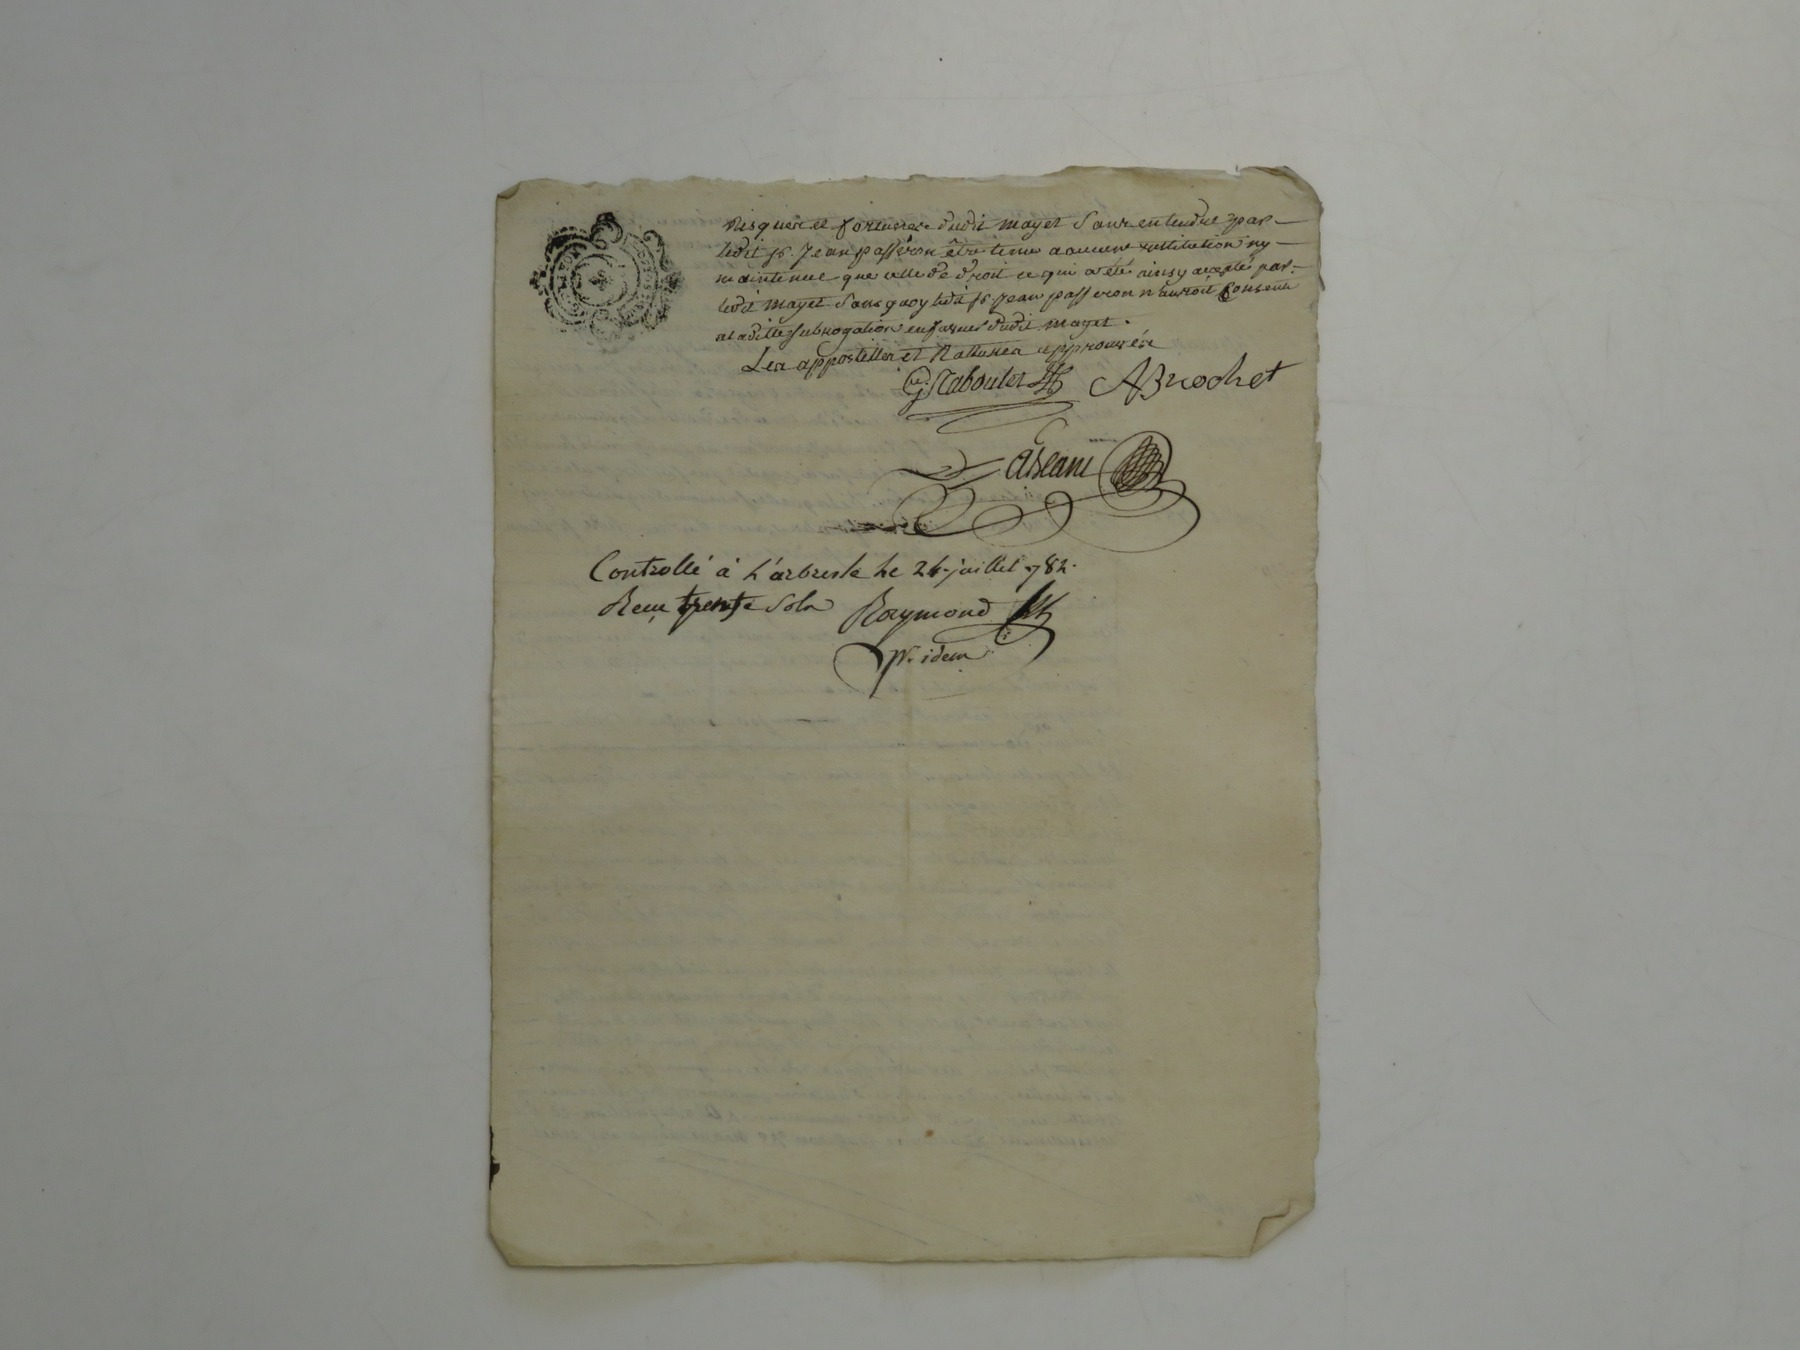 Risques et fortunes dudit mayet Sans entendre par
ledit sr. Jean passeron être tenu a aucune restitution ny
maintenue que celle de droit ce qui a été ainsy accepté par
ledit mayet Sans quoy ledit sr Jean passeron n'auroit Consenti
a laditte subrogation en faveur dudit mayet.
Les appostilles et Ratures approuvées
ABrochet
Controllé à L'arbresle Le 24 juillet 782.
Reçu trente Sols Raymond
pr. idem